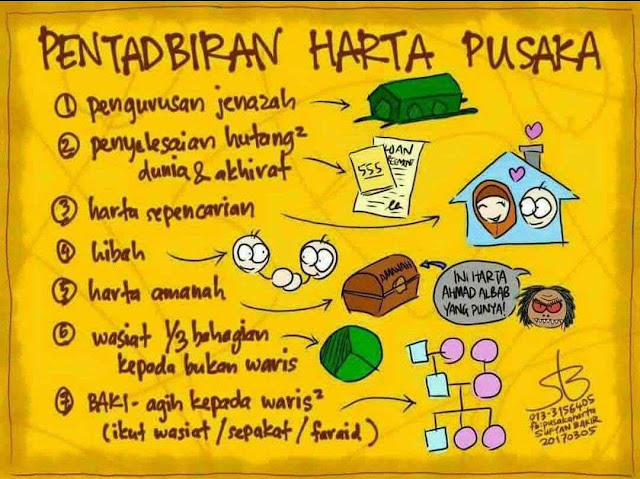 PENTADBIRAN HARTA PUSAKA
① pengurusan jenazah
② penyelesaian hutang²
dunia & akhirat
555
LOAN
AGREEMENT
③ harta sepencarian
④ hibah
⑤ harta amanah
AMANAH
INI HARTA
AHMAD ALBAB
YANG PUNYA!
⑥ wasiat 1/3 bahagian
kepada bukan waris
⑦ BAKI - agih kepada waris²
(ikut wasiat / sepakat / faraid)
SB
013-3156405
fb:pusakaharta
SUFYAN BAKIR
20170305